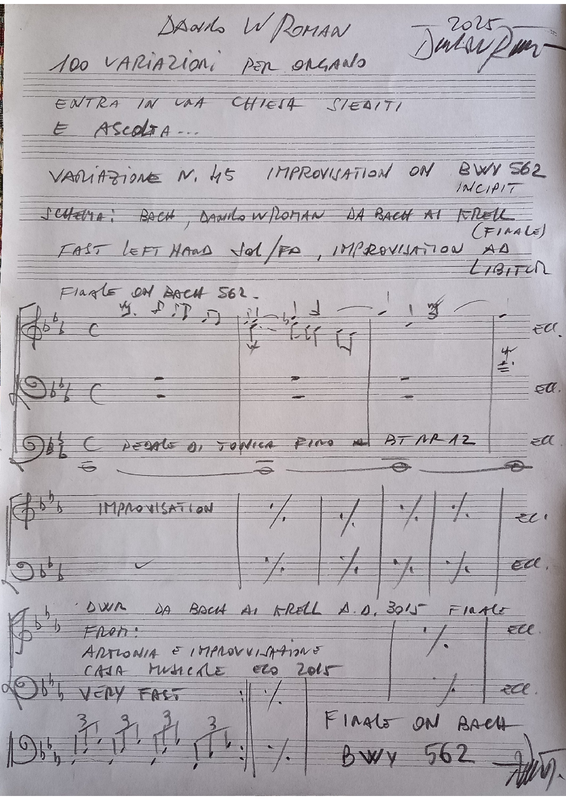 DANILO W ROMAN
2025
100 VARIAZIONI PER ORGANO
ENTRA IN UNA CHIESA SIEDITI
E ASCOLTA...
VARIAZIONE N. 45 IMPROVISATION ON BWV 562
INCIPIT
SCHEMA: BACH, DANILO W ROMAN DA BACH AI KRELL
(FINALE)
FAST LEFT HAND SOL/FA, IMPROVISATION AD
LIBITUM
FINALE ON BACH 562.
C
ECC.
C
ECC.
C PEDALE DI TONICA FINO BT NR 12 ECC.
IMPROVISATION
ECC.
ECC.
DWR DA BACH AI KRELL A.D. 3015 FINALE
FROM:
ECC.
ARMONIA E IMPROVVISAZIONE
CASA MUSICALE ECO 2015
VERY FAST
ECC.
3 3 3 3
FINALE ON BACH
BWV 562